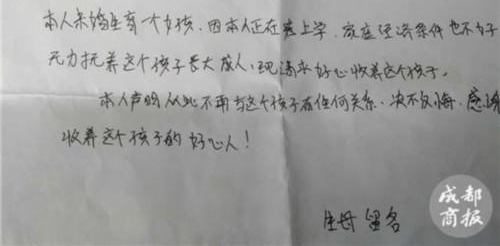 本人未婚生育一个女孩，因本人正在上学，家庭经济条件也不好
无力抚养这个孩子长大成人，现请求好心收养这个孩子。
本人声明从此不再与这个孩子有任何关系，决不反悔，感谢
收养这个孩子的好心人！
生母留名
成都
商报